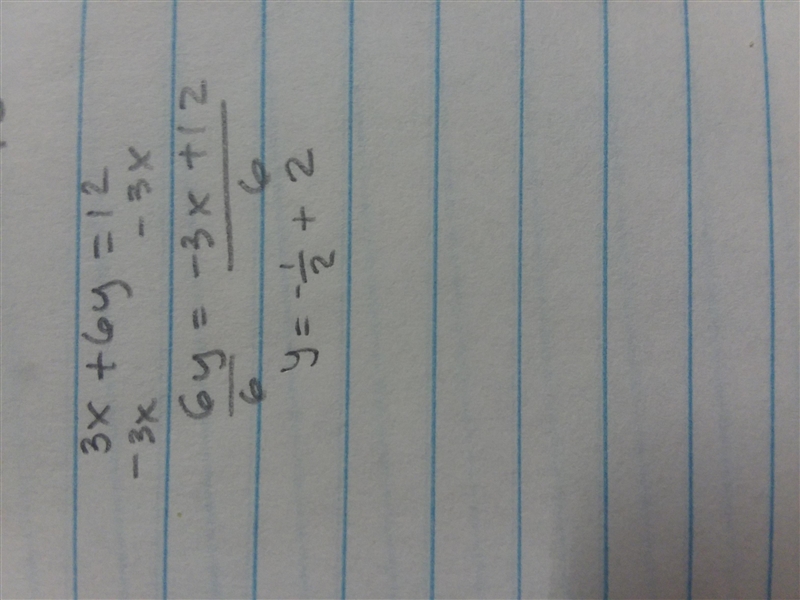 3x + 6y = 12
-3x -3x
6y = -3x + 12
6 6
y = -1/2 + 2